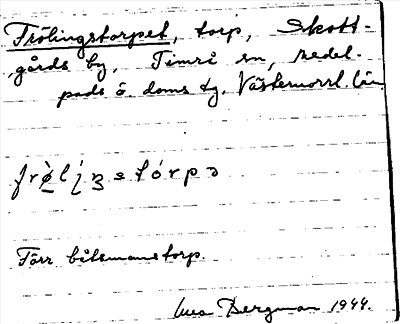 Frölingstorpet, torp, Skott-
gårds by, Timrå sn, Medel-
pads ö. doms tg. Västernorrl. län
Förr båtsmanstorp.
Bergman 1944.